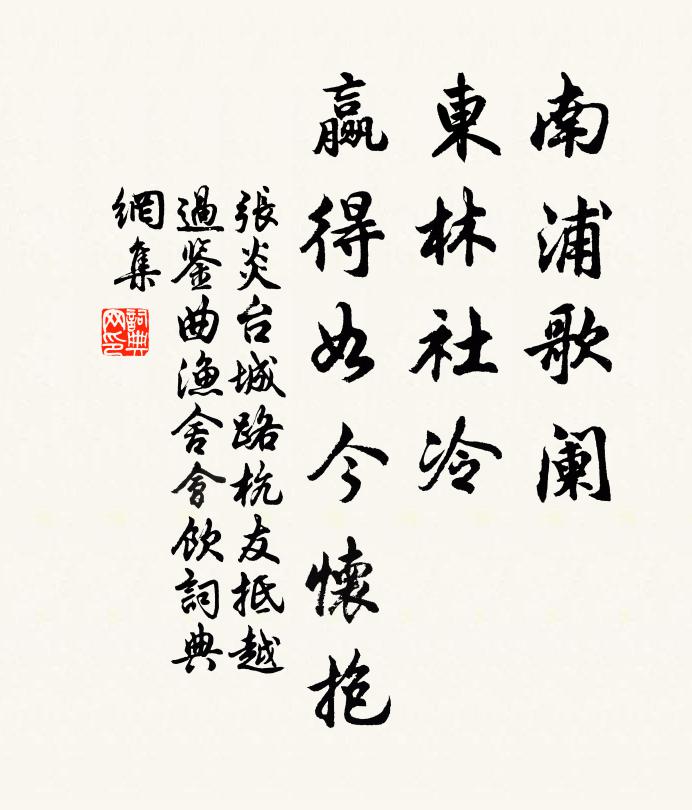 南浦歌阑
東林社冷
贏得如今懷抱
張炎台城路杭友抵越
過鉴曲漁舍會飲詞典
網集
詞典
网印